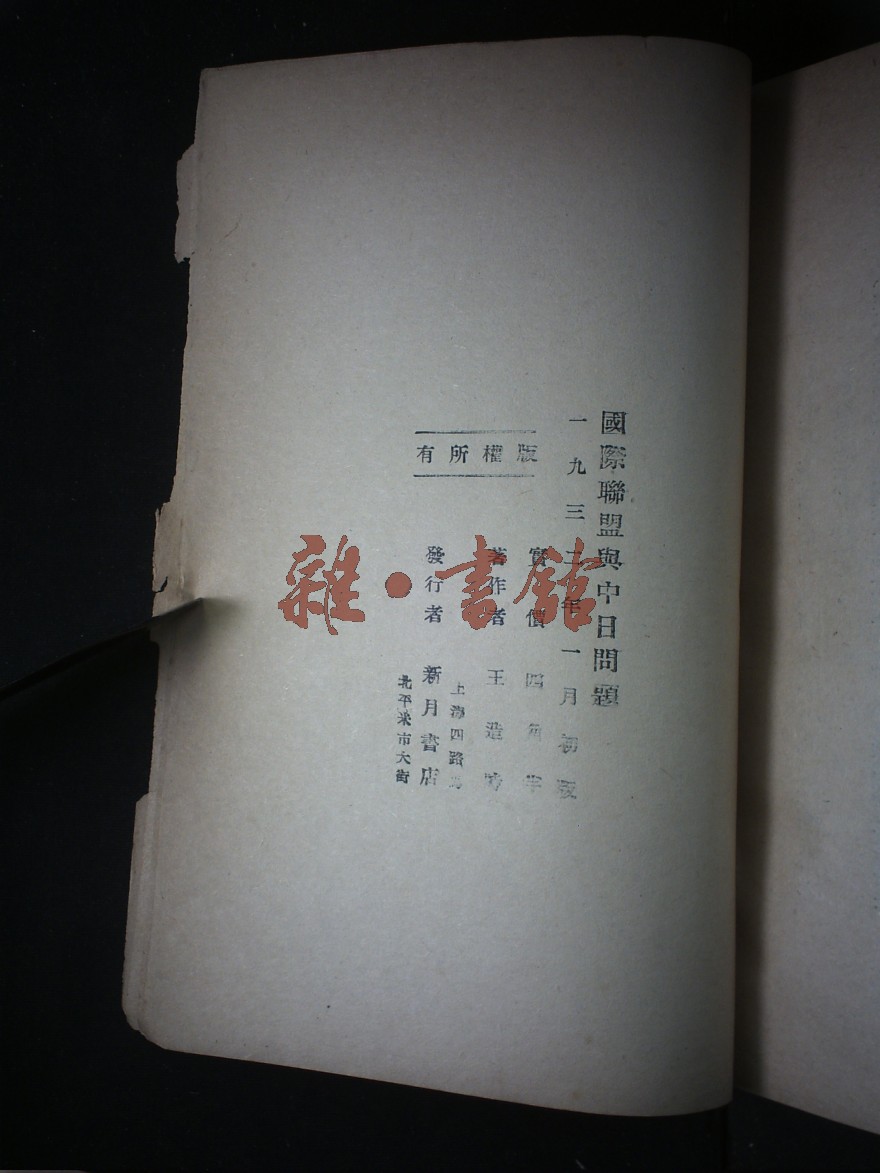 國際聯盟與中日問題
一九三二年一月初版
實價 四角半
著作者 王造時
發行者 新月書店
上海四路
北平米市大街
版權所有
雜·書館